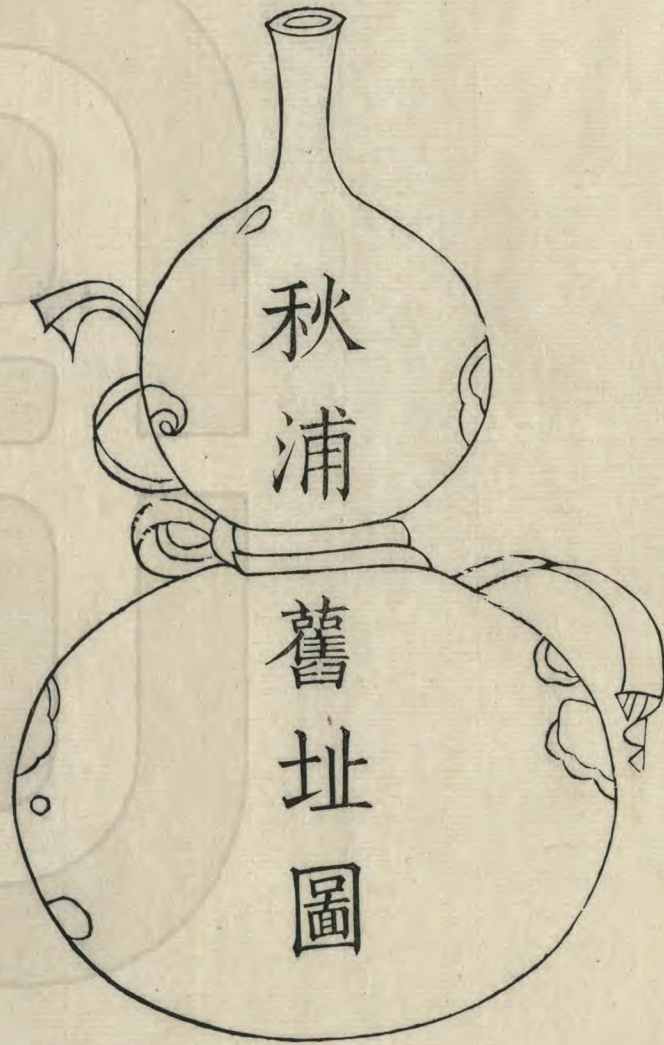 秋浦舊址圖